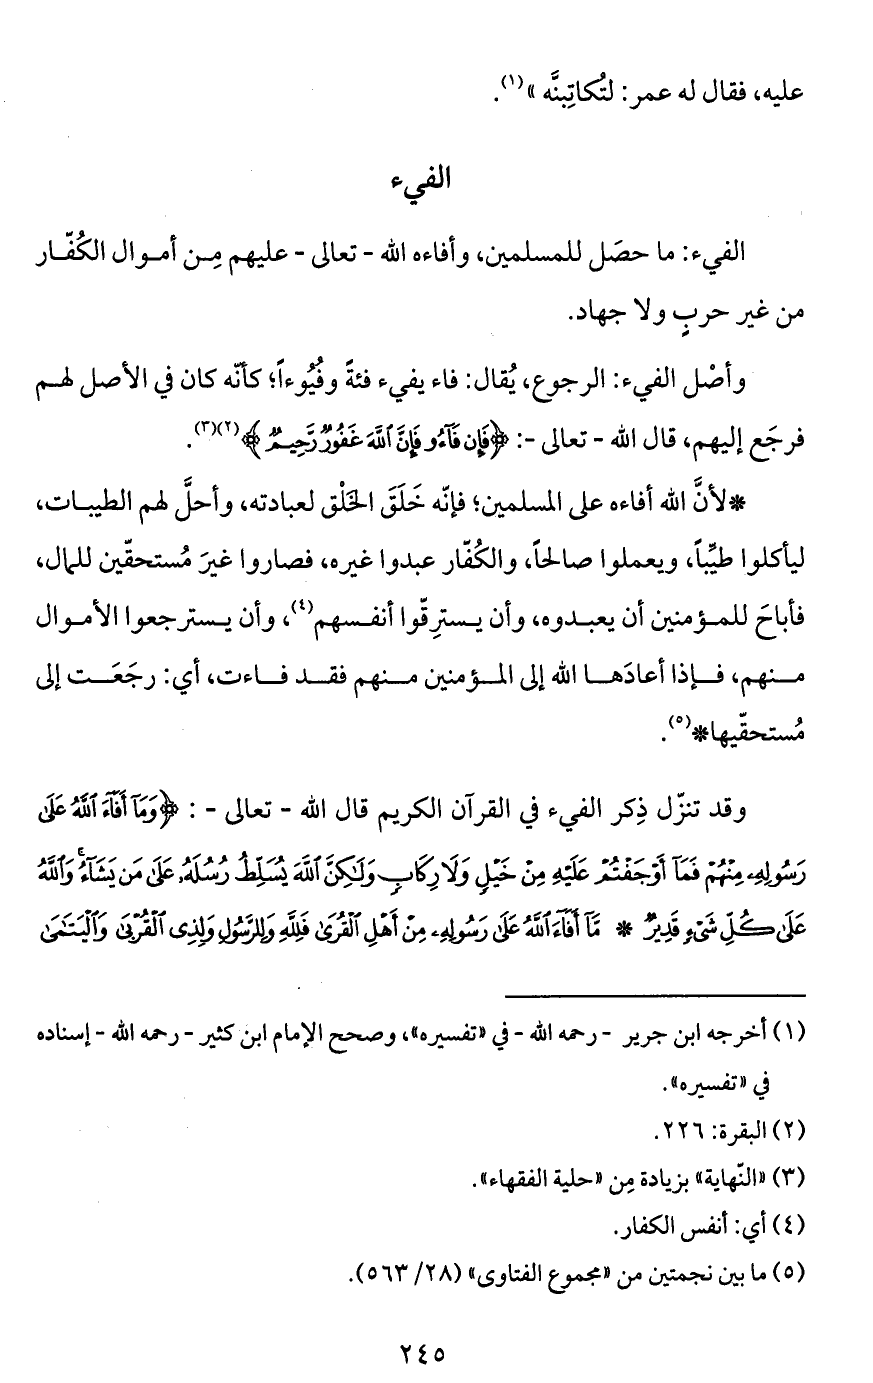 عليه، فقال له عمر: لتُكاتِبنَّه »(١).
الفيء
الفيء: ما حصَل للمسلمين، وأفاءه الله - تعالى - عليهم مِن أموال الكُفّار
من غير حربٍ ولا جهاد.
وأصْل الفيء: الرجوع، يُقال: فاء يفيء فئةً وفُيُوءاً؛ كأنّه كان في الأصل لهم
فرجَع إليهم، قال الله - تعالى -: ﴿فَإِن فَآءُو فَإِنَّ ٱللَّهَ غَفُورٌ رَّحِيمٌ﴾(٢)(٣).
*لأنَّ الله أفاءه على المسلمين؛ فإنّه خَلَقَ الخَلْق لعبادته، وأحلَّ لهم الطيبات،
ليأكلوا طيِّباً، ويعملوا صالحاً، والكُفّار عبدوا غيره، فصاروا غيرَ مُستحقّين للمال،
فأباحَ للمؤمنين أن يعبدوه، وأن يسترِقّوا أنفسهم(٤)، وأن يسترجعوا الأموال
منهم، فإذا أعادَها الله إلى المؤمنين منهم فقد فاءت، أي: رجَعَت إلى
مُستحقّيها*(٥).
وقد تنزّل ذِكر الفيء في القرآن الكريم قال الله - تعالى - : ﴿وَمَآ أَفَآءَ ٱللَّهُ عَلَىٰ
رَسُولِهِۦ مِنْهُمْ فَمَآ أَوْجَفْتُمْ عَلَيْهِ مِنْ خَيْلٍ وَلَا رِكَابٍ وَلَٰكِنَّ ٱللَّهَ يُسَلِّطُ رُسُلَهُۥ عَلَىٰ مَن يَشَآءُ ۚ وَٱللَّهُ
عَلَىٰ كُلِّ شَىْءٍ قَدِيرٌ * مَّآ أَفَآءَ ٱللَّهُ عَلَىٰ رَسُولِهِۦ مِنْ أَهْلِ ٱلْقُرَىٰ فَلِلَّهِ وَلِلرَّسُولِ وَلِذِى ٱلْقُرْبَىٰ وَٱلْيَتَٰمَىٰ
(١) أخرجه ابن جرير - رحمه الله - في «تفسيره»، وصحح الإمام ابن كثير - رحمه الله - إسناده
في «تفسيره».
(٢) البقرة: ٢٢٦.
(٣) «النّهاية» بزيادة مِن «حلية الفقهاء».
(٤) أي: أنفس الكفار.
(٥) ما بين نجمتين من «مجموع الفتاوى» (٢٨/ ٥٦٣).
٢٤٥